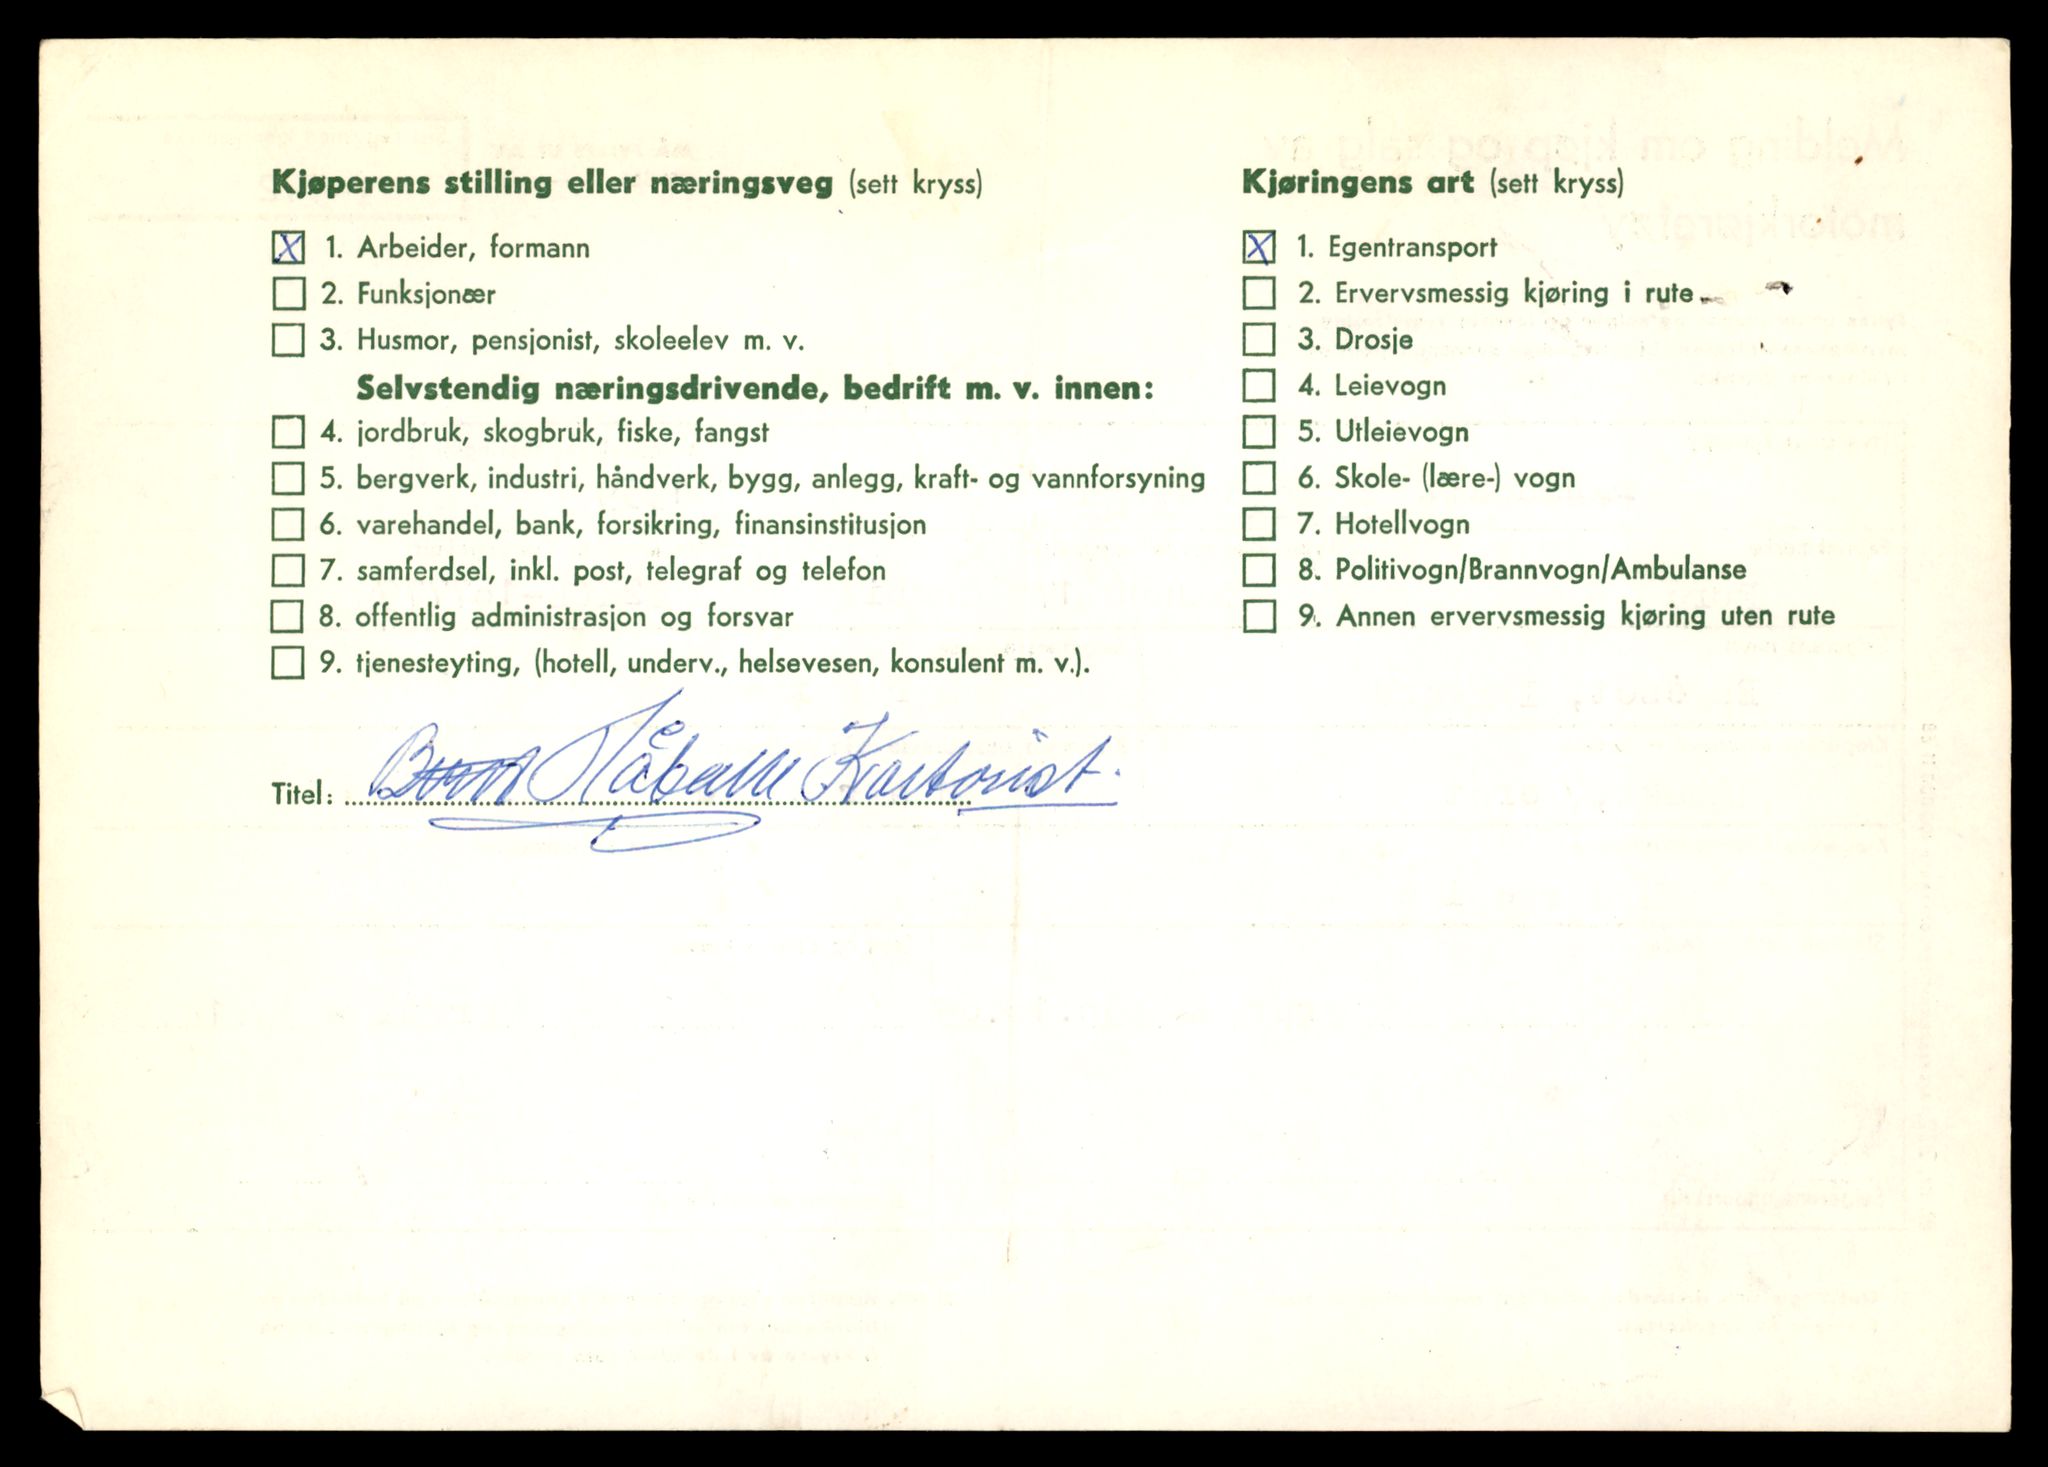 Kjøperens stilling eller næringsveg (sett kryss)
X 1. Arbeider, formann
2. Funksjonær
3. Husmor, pensjonist, skoleelev m. v.
Selvstendig næringsdrivende, bedrift m. v. innen:
4. jordbruk, skogbruk, fiske, fangst
5. bergverk, industri, håndverk, bygg, anlegg, kraft- og vannforsyning
6. varehandel, bank, forsikring, finansinstitusjon
7. samferdsel, inkl. post, telegraf og telefon
8. offentlig administrasjon og forsvar
9. tjenesteyting, (hotell, underv., helsevesen, konsulent m. v.).
Titel:
Kjøringens art (sett kryss)
X 1. Egentransport
2. Ervervsmessig kjøring i rute
3. Drosje
4. Leievogn
5. Utleievogn
6. Skole- (lære-) vogn
7. Hotellvogn
8. Politivogn/Brannvogn/Ambulanse
9. Annen ervervsmessig kjøring uten rute